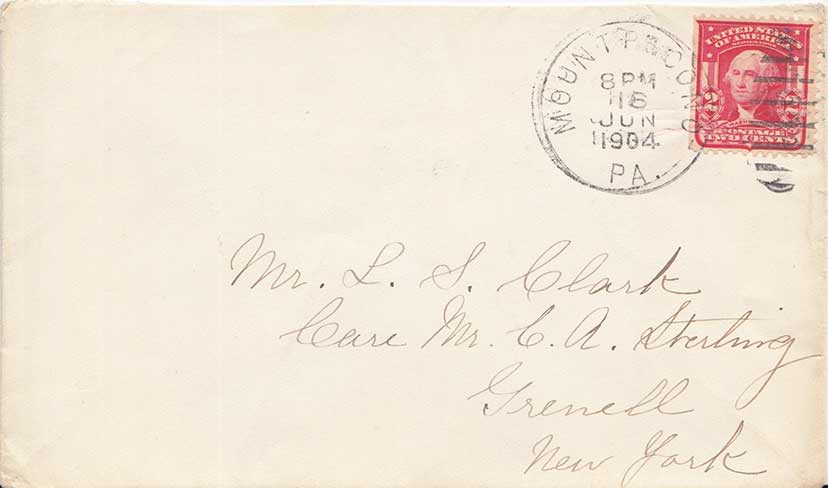 MOUNT POCONO
8 PM
16
JUN
1904
PA.
UNITED STATES
OF AMERICA
2 2
POSTAGE
TWO CENTS
Mr. L. S. Clark
Care Mr. C. A. Sterling
Grenell
New York